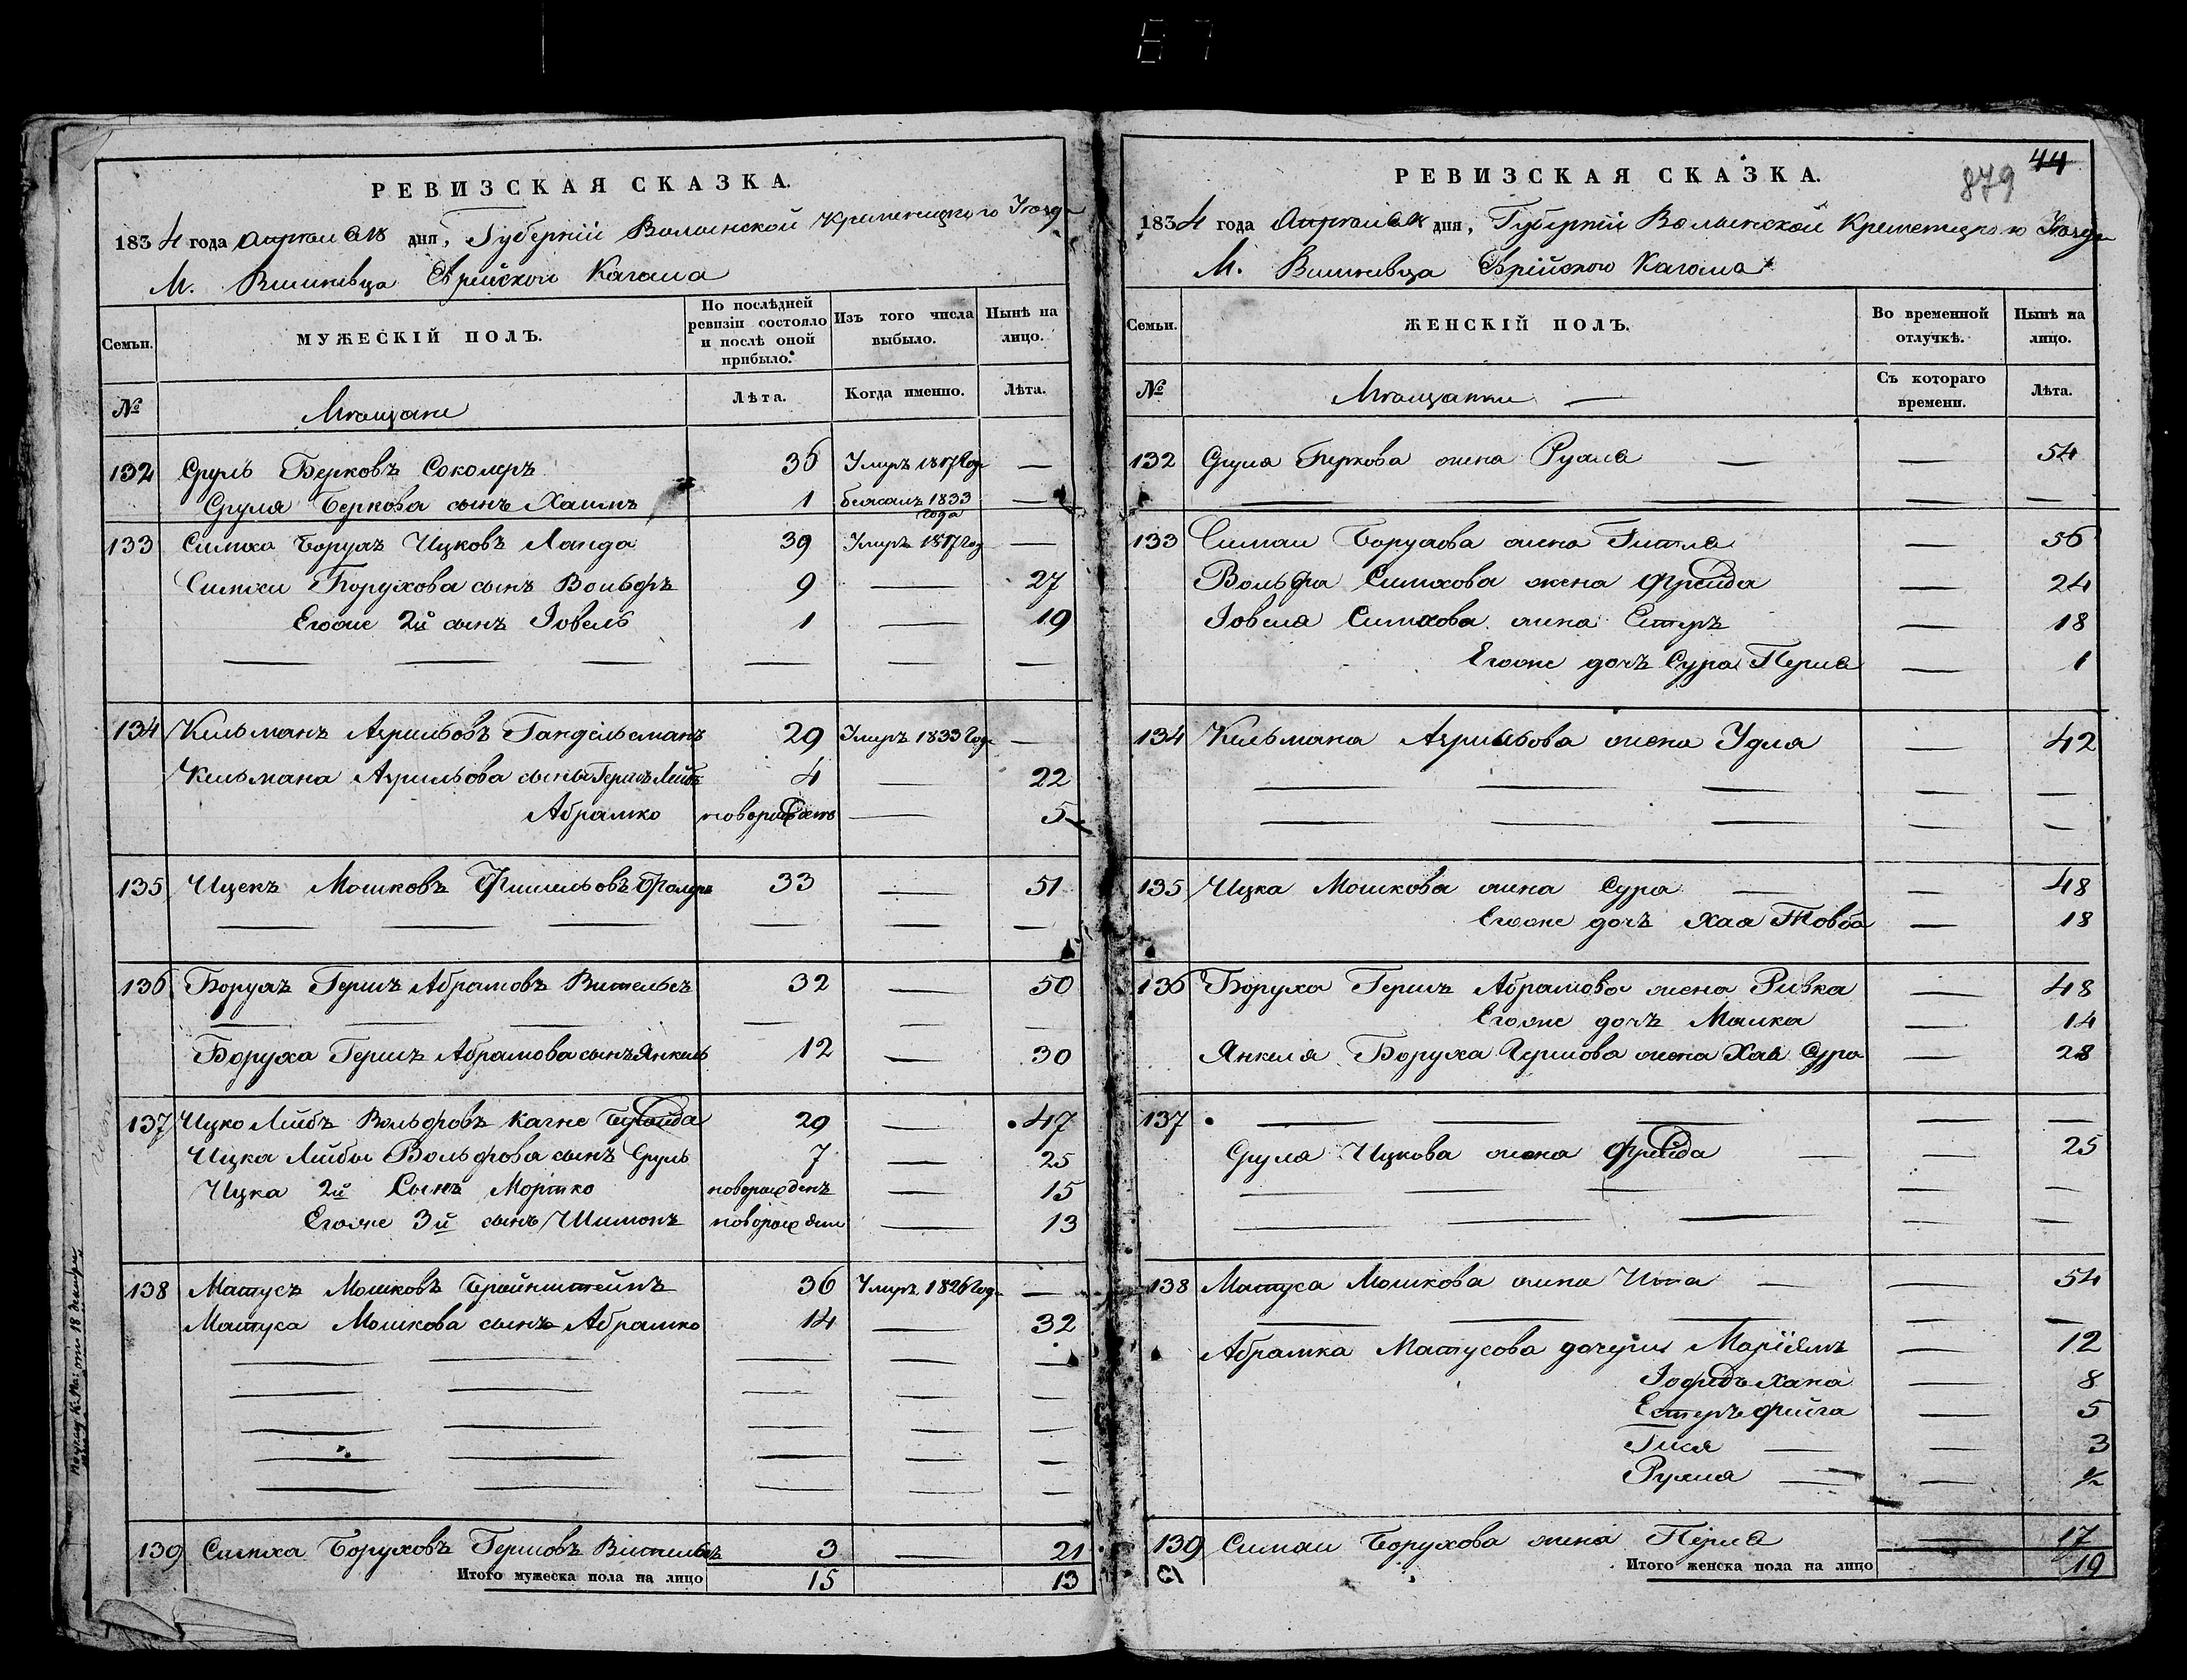 РЕВИЗСКАЯ СКАЗКА.
1834 года Апреля дня, Губерніи Волынской Кременецкого Уезда
М. Вишневца Еврейского Кагала
Семьи.
МУЖЕСКІЙ ПОЛЪ.
По послѣдней ревизіи состояло и послѣ оной прибыло.
Изъ того числа выбыло.
Нынѣ на лицо.
№
Мещане
Лѣта.
Когда именно.
Лѣта.
132 Сруль Берковъ Соколеръ 36 Умеръ 1817 Года —
Сруля Беркова сынъ Хаимъ 1 бежалъ 1833 года —
133 Симха Борухъ Ицковъ Ланда 39 Умеръ 1817 Год —
Симхи Борухова сынъ Вольфъ 9 — 27
Егоже 2й сынъ Іовель 1 — 19
134 Кельманъ Азрильовъ Гандельсманъ 29 Умеръ 1833 Года —
Кельмана Азрильова сынъ Гершъ Лейбъ 4 — 22
Абрамко новорожденъ — 5
135 Ицекъ Мошковъ Фишельовъ 33 — 51
136 Борухъ Гершъ Абрамовъ Вительсъ 32 — 50
Боруха Гершъ Абрамова сынъ Янкель 12 — 30
137 Ицко Лейбъ Вольфовъ 29 — 47
Ицка Лейбы Вольфова сынъ Сруль 7 — 25
Ицка 2й Сынъ Мортко новорожденъ — 15
Егоже 3й сынъ Шимонъ новорожден — 13
138 Матусъ Мошковъ Брайнштейнъ 36 Умеръ 1826 Года —
Матуса Мошкова сынъ Абрамко 14 — 32
139 Симха Боруховъ Гершовъ Вительсъ 3 — 21
Итого мужеска пола на лицо 15 13
879 44
РЕВИЗСКАЯ СКАЗКА.
1834 года Апреля дня, Губерніи Волынской Кременецкого Уезда
М. Вишневца Еврейского Кагала
Семьи.
ЖЕНСКІЙ ПОЛЪ.
Во временной отлучкѣ.
Нынѣ на лицо.
№
Мещанки —
Съ котораго времени.
Лѣта.
132 Сруля Беркова жена Рухля — — 54
133 Симхи Борухова жена Гитля — 56
Вольфа Симхова жена Фрейда — 24
Іовеля Симхова жена Естеръ — 18
Егоже дочъ Сура Перля — 1
134 Кельмана Азрильова жена Удля — 42
135 Ицка Мошкова жена Сура — — 48
Егоже дочъ Хая Товба — 18
136 Боруха Гершъ Абрамова жена Ривка — 48
Егоже дочъ Малка — 14
Янкеля Боруха Гершова жена Хая Сура — 28
137 — — — — —
Сруля Ицкова жена Фрейда — — 25
138 Матуса Мошкова жена — — 54
Абрамка Матусова дочери Маріямъ — 12
Хана — 8
Естеръ Фейга — 5
Гися — — 3
Рухля — — ½
139 Симхи Борухова жена Перля — 17
Итого женска пола на лицо 19